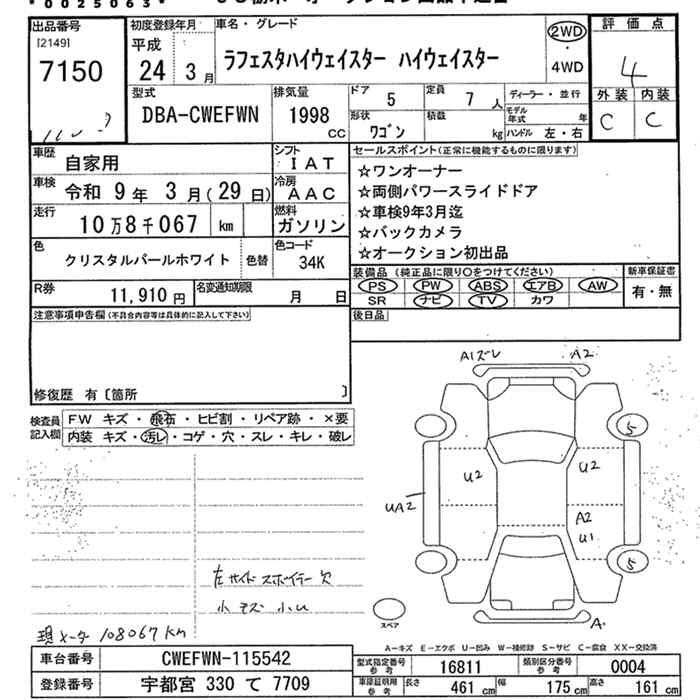 *0025063*
出品番号
[2149]
7150
初度登録年月
平成
24 3 月
車名・グレード
ラフェスタハイウェイスター ハイウェイスター
2WD
4WD
評価点
4
外装 内装
C C
型式
DBA-CWEFWN
排気量
1998
CC
ドア 5
定員 7 人
形状 ワゴン
積載 kg
ディーラー・並行
モデル年式 年
ハンドル 左・右
車歴 自家用
シフト IAT
車検 令和 9 年 3 月 (29 日)
冷房 AAC
走行 10万8千067 km
燃料 ガソリン
色 クリスタルパールホワイト 色替
色コード 34K
R券 11,910 円
名変通知期限 月 日
セールスポイント(正常に機能するものに限ります)
☆ワンオーナー
☆両側パワースライドドア
☆車検9年3月迄
☆バックカメラ
☆オークション初出品
装備品 (純正品に限り○をつけてください)
PS PW ABS エアB AW
SR ナビ TV カワ
新車保証書
有・無
後日品
注意事項申告欄(不具合内容等は具体的に記入して下さい)
修復歴 有〔箇所 〕
検査員記入欄
FW キズ・飛石・ヒビ割・リペア跡・×要
内装 キズ・汚レ・コゲ・穴・スレ・キレ・破レ
A1ズレ A2
5
U2 U2
UA2
A2
U1
5
スペア
A
左サイドスポイラー欠
小キズ 小U
現メータ 108067 km
A-キズ E-エクボ U-凹み W-補修跡 S-サビ C-腐食 XX-交換済
車台番号 CWEFWN-115542
登録番号 宇都宮 330 て 7709
型式指定番号 参考 16811
類別区分番号 参考 0004
車庫証明用 参考
長さ 461 cm 幅 175 cm 高さ 161 cm